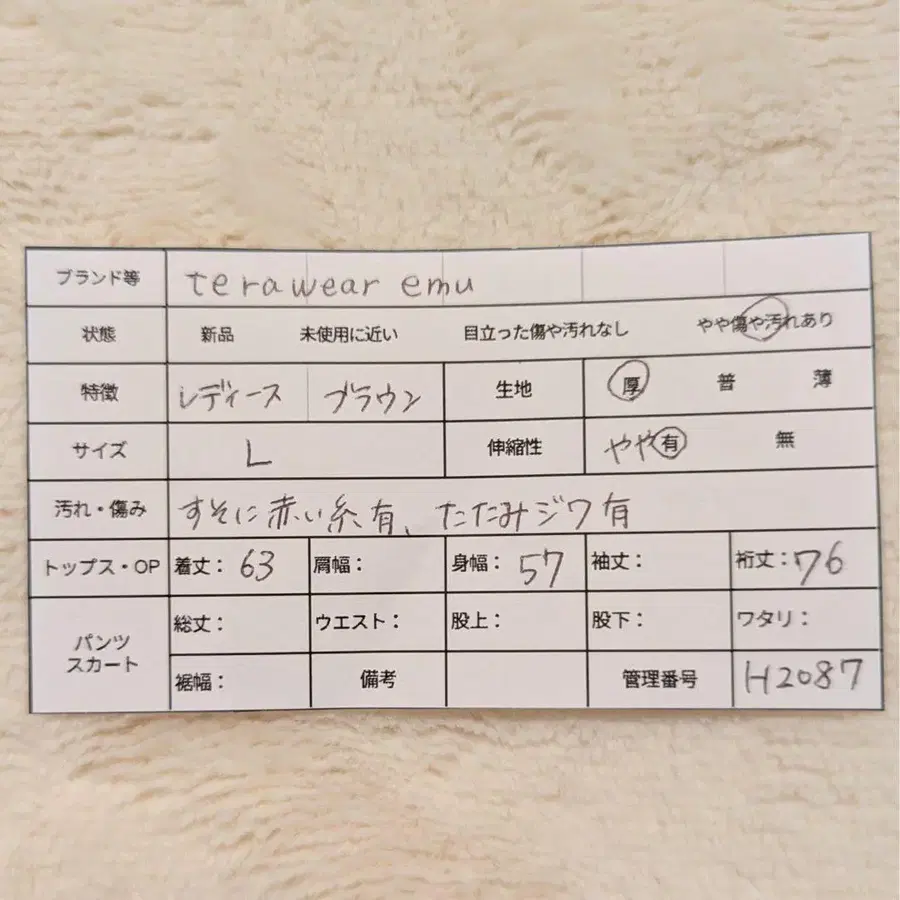 ブランド等 terawear emu
状態 新品 未使用に近い 目立った傷や汚れなし やや傷や汚れあり
特徴 レディース ブラウン 生地 厚 普 薄
サイズ L 伸縮性 やや有 無
汚れ・傷み すそに赤い糸有、たたみジワ有
トップス・OP 着丈：63 肩幅： 身幅：57 袖丈： 裄丈：76
パンツ スカート 総丈： ウエスト： 股上： 股下： ワタリ：
裾幅： 備考 管理番号 H2087